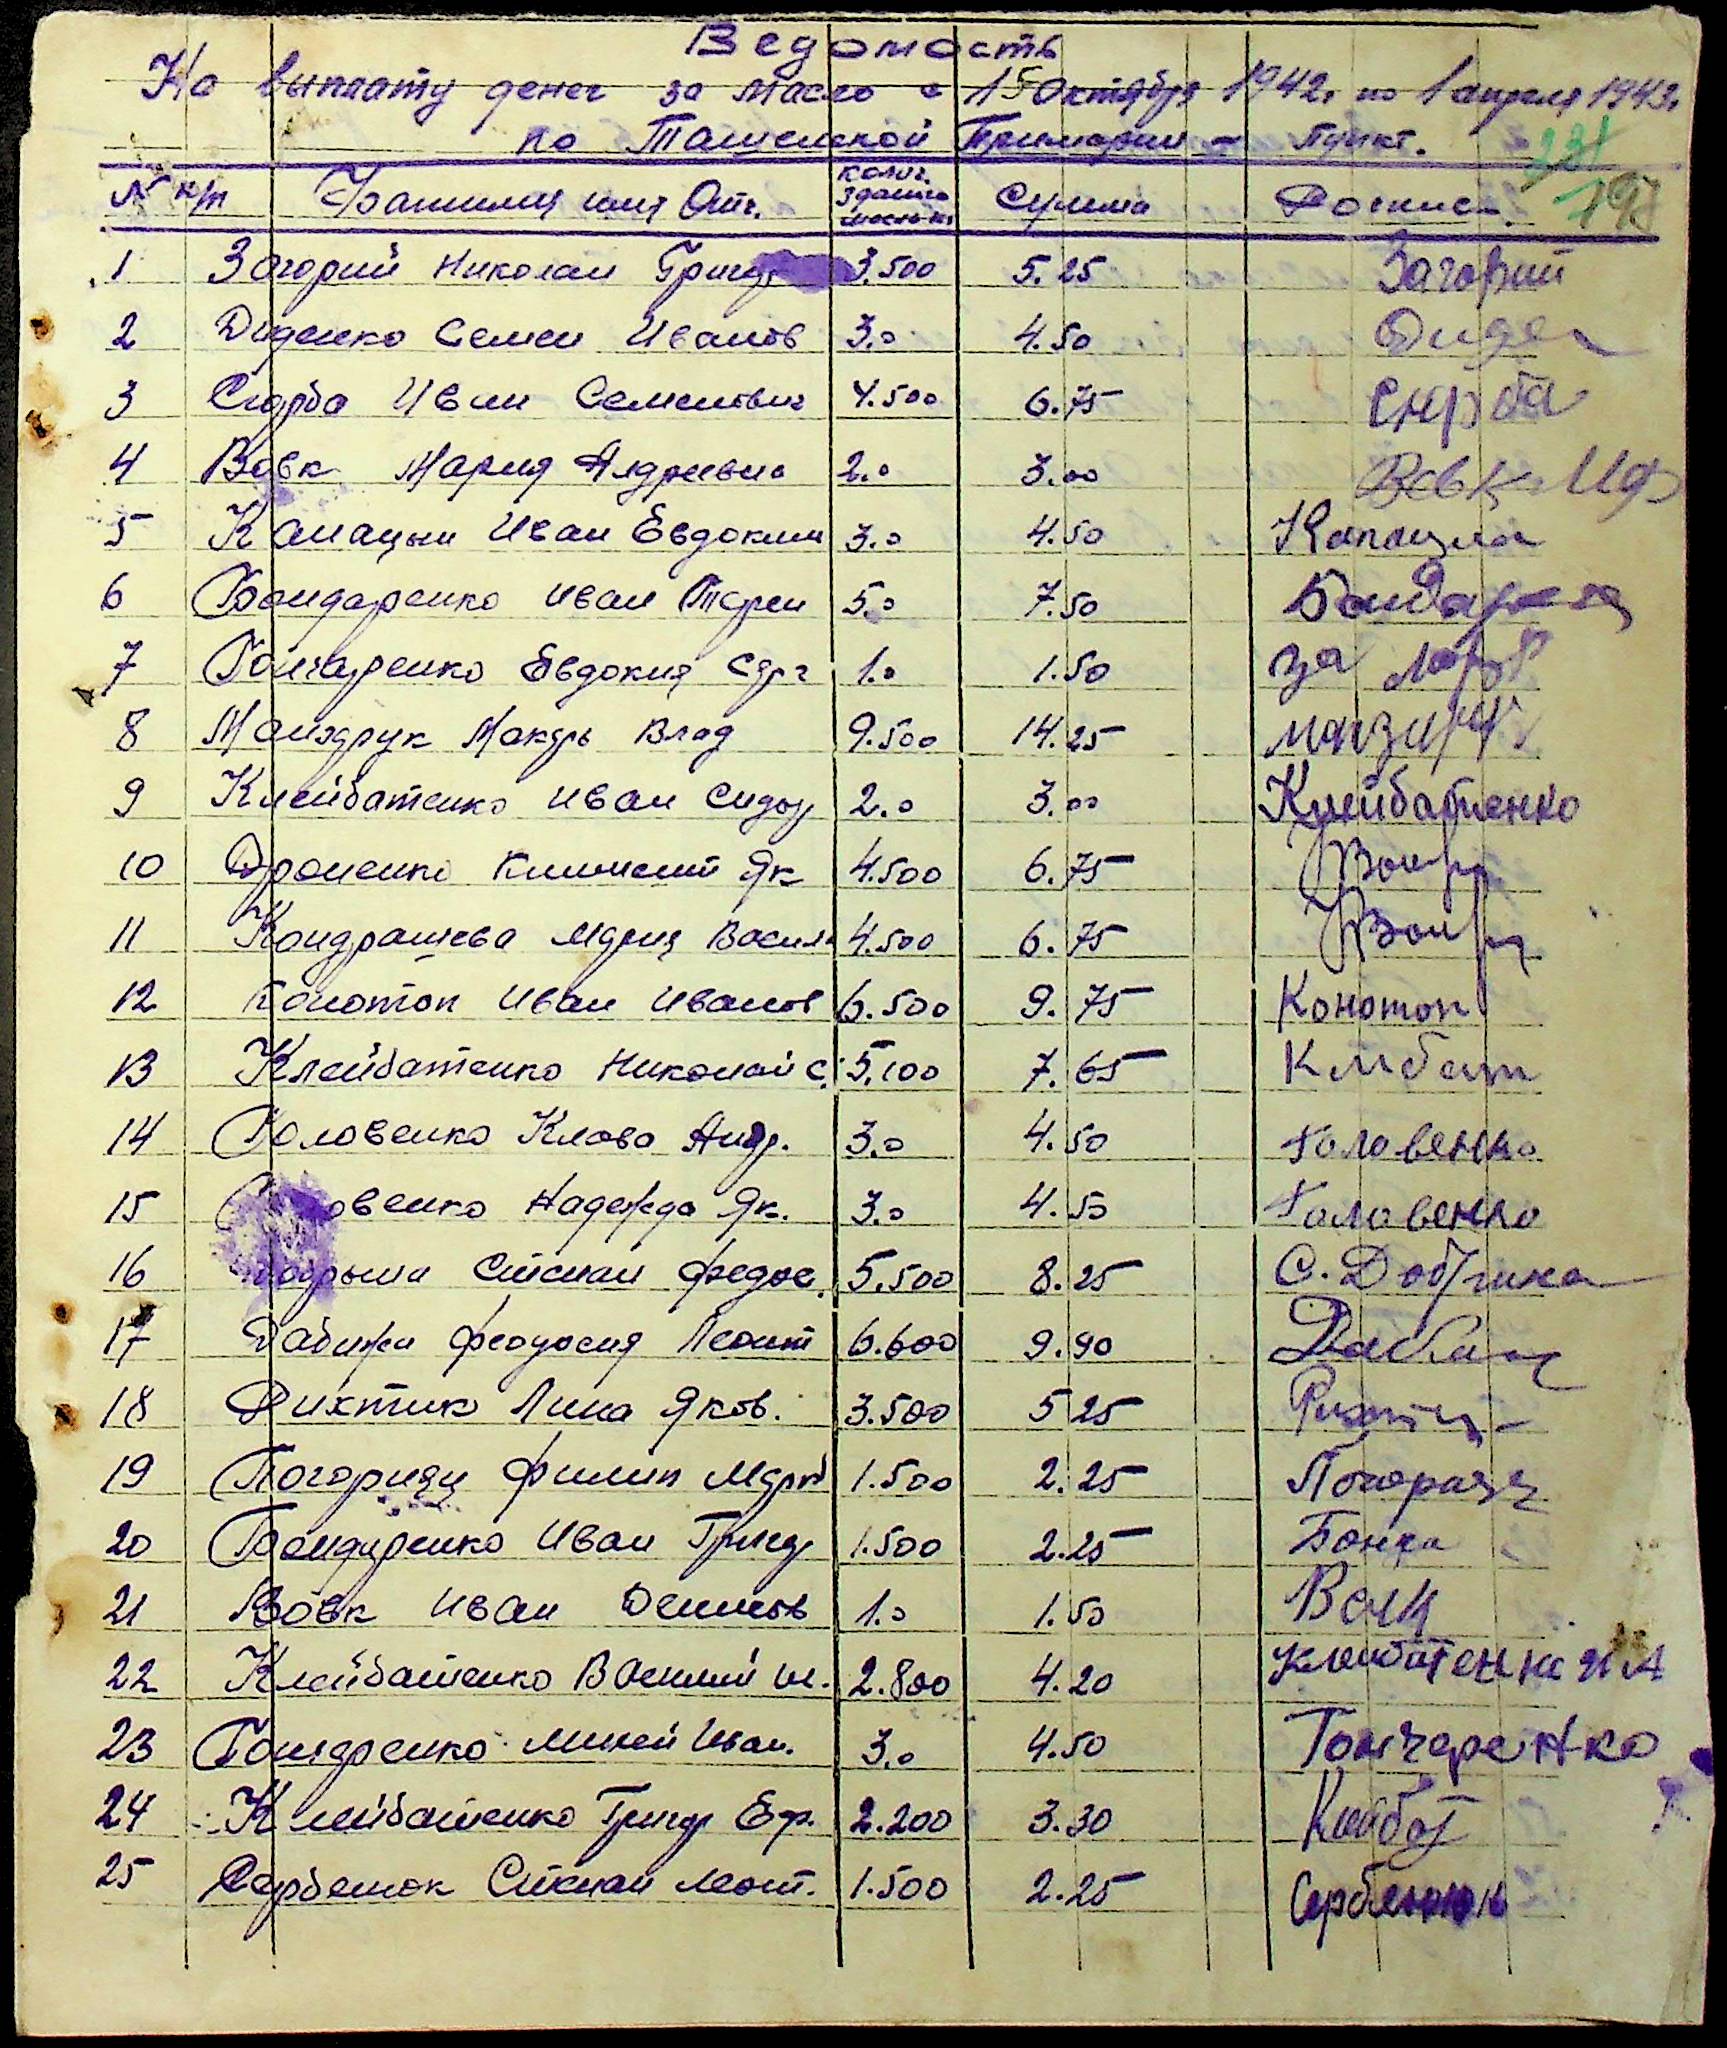 Ведомость
На выплату денег за масло с 15 октября 1942г. по 1 апреля 1943г.
по Ташенской Примарии — пункт.
231
197
№ п/п Фамилия имя Отч. колич. зданого масла кг Сумма Роспись.
1 Загорий Николай Григор 3.500 5.25 Загорий
2 Диденко Семен Иванов 3.0 4.50 Диден
3 Скорба Иван Семенович 4.500 6.75
4 Вовк Мария Андреевна 2.0 3.00 Вовк
5 Капацын Иван Евдоким 3.0 4.50 Капацын
6 Бондаренко Иван Терен 5.0 7.50 Бондарен
7 Гончаренко Евдокия Серг 1.0 1.50 за
8 Манзарук Макарь Влад 9.500 14.25 манзару
9 Клейбатенко Иван Сидор 2.0 3.00 Клейбатенко
10 Дроненко Климентий Як 4.500 6.75
11 Кондрашева Мария Васил 4.500 6.75
12 Конотоп Иван Иванов 6.500 9.75 Конотоп
13 Клейбатенко Николай С. 5.100 7.65 Клбат
14 Головенко Клава Андр. 3.0 4.50 Головенко
15 Головенко Надежда Як. 3.0 4.50 Головенко
16 Степан Федос. 5.500 8.25 С.
17 Дабижа Феодосия Леонт 6.600 9.90
18 Рихтик Лина Яков. 3.500 5 25
19 Погорняц Филип Марк 1.500 2.25
20 Бондаренко Иван Григор 1.500 2.25 Бонда
21 Вовк Иван Денисов 1.0 1.50
22 Клейбатенко Василий И. 2.800 4.20
23 Гончаренко Миней Иван. 3.0 4.50 Гончаренко
24 Клейбатенко Григор Еф. 2.200 3.30 Клейбат
25 Сербенюк Степан Леонт. 1.500 2.25 Сербенюк